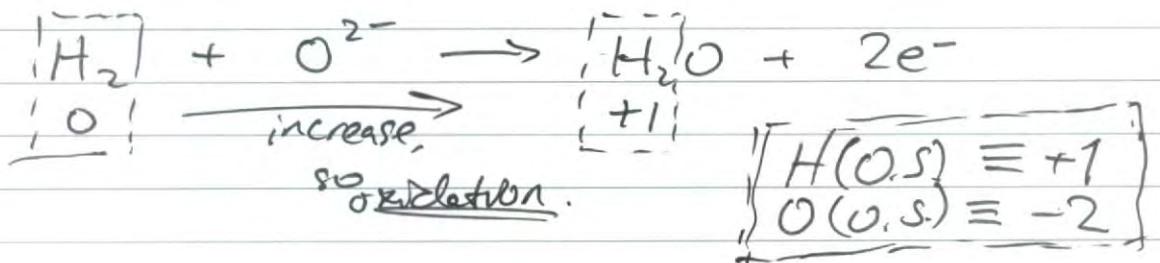 H₂ + O²⁻ → H₂O + 2e⁻
0 → +1
increase,
so oxidation.
H(O.S) ≡ +1
O(O.S.) ≡ -2